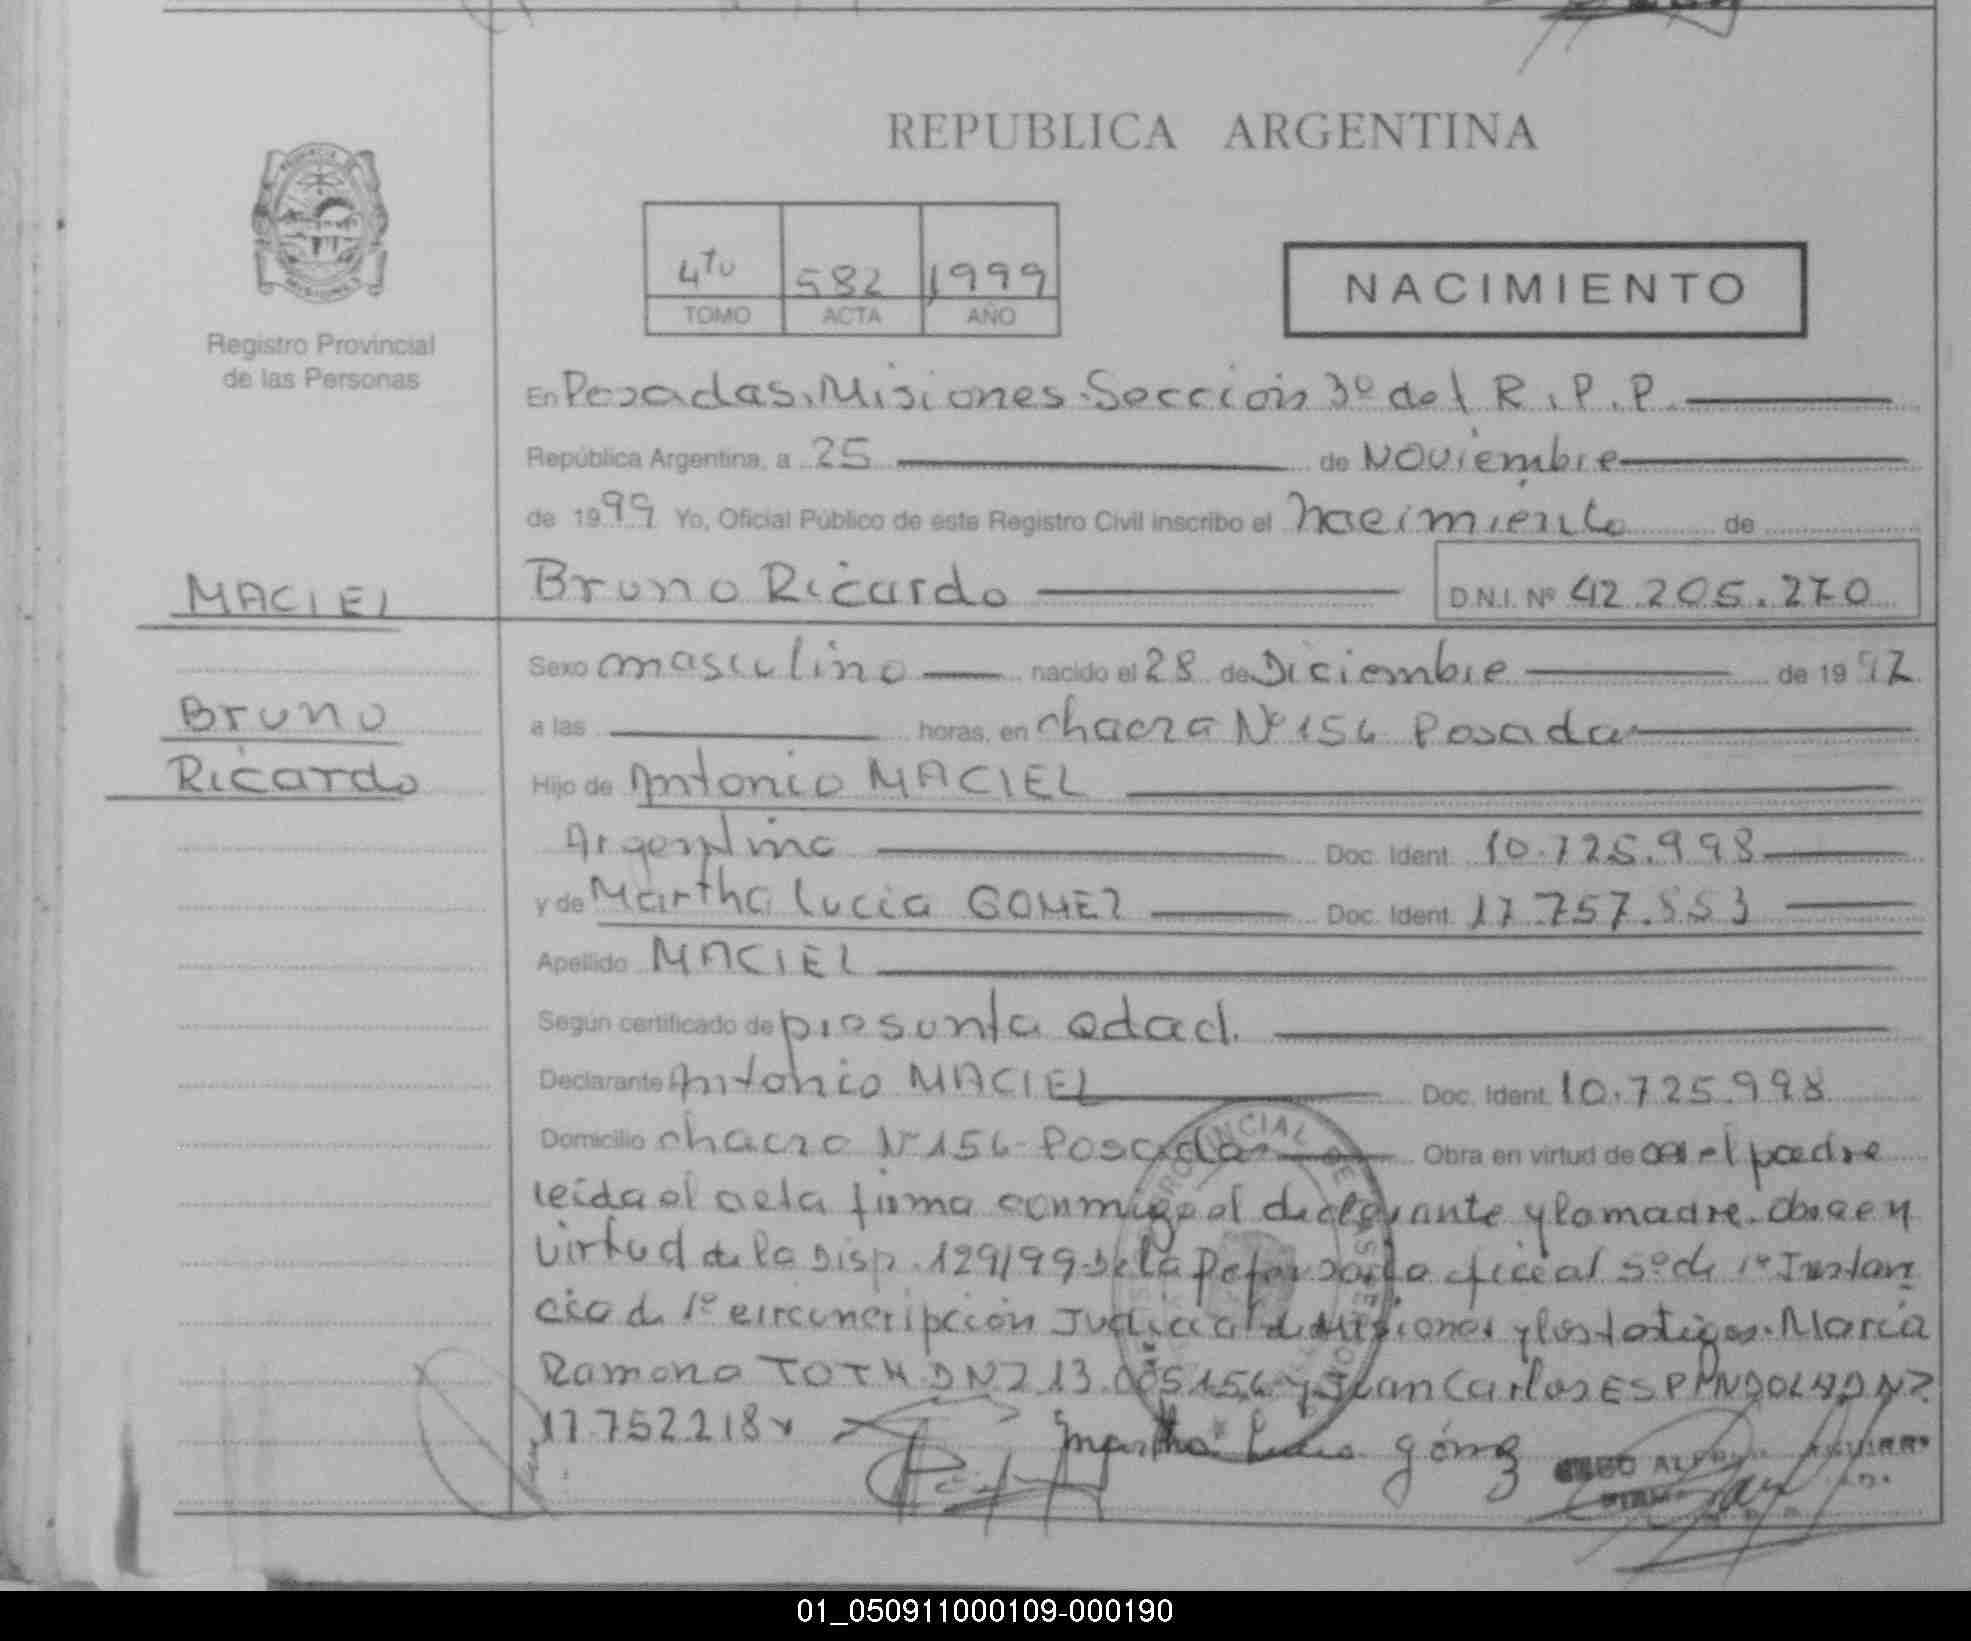 REPUBLICA ARGENTINA
4to 582 1999
TOMO ACTA AÑO
NACIMIENTO
Registro Provincial
de las Personas
En Posadas, Misiones. Sección 3º del R.P.P.
República Argentina, a 25 de Noviembre
de 1999 Yo, Oficial Público de este Registro Civil inscribo el nacimiento de
MACIEL
Bruno Ricardo D.N.I. Nº 42.205.270
Sexo masculino nacido el 28 de Diciembre de 19
Bruno
Ricardo
a las horas, en chacra Nº 154 Posadas
Hijo de Antonio MACIEL
Argentino Doc. Ident. 10.725.998
y de Martha Lucia GOMEZ Doc. Ident. 17.757.553
Apellido MACIEL
Según certificado de presunta edad.
Declarante Antonio MACIEL Doc. Ident. 10.725.998
Domicilio chacra Nº 154 - Posadas Obra en virtud de ser el padre
leída el acta firma conmigo el declarante y la madre. Obra en
virtud de la Disp. 129/99 de la Defensoria oficial 5º de 1º Instan
cia de 1º circuncripción Judicial de Misiones y los testigos. María
Ramona TOTH DNI 13.005.154 y Juan Carlos ESPINDOLA DNI
17.752.218
Martha Lucia Gómez
01_050911000109-000190